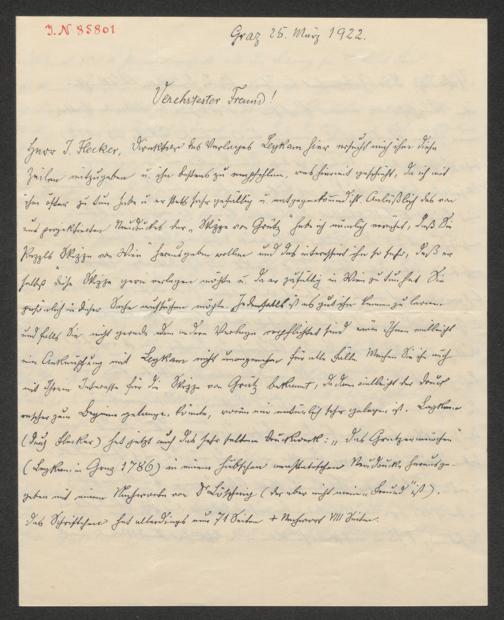 J.N 85801
Graz 25. März 1922.
Verehrtester Freund!
Herr J. Flecker, Direktor des Verlages Leykam hier ersucht mich ihm diese
Zeilen mitzugeben u. ihn bestens zu empfehlen, was hiermit geschieht, da ich mit
ihm öfter zu tun habe u. er stets sehr gefällig u. entgegenkommend ist. Anläßlich des von
uns projektierten Neudruckes der „Skizze von Grätz" habe ich nämlich erwähnt, daß Sie
Pezzls Skizze von Wien herausgeben wollen und das interessiert ihn so sehr, daß er
selbst diese Skizze gern verlegen möchte u. da er zufällig in Wien zu tun hat Sie
persönlich in dieser Sache aufsuchen möchte. Jedenfalls ist es gut ihn kennen zu lernen
und falls Sie nicht gerade einem andern Verlage verpflichtet sind wäre Ihnen vielleicht
eine Anknüpfung mit Leykam nicht unangenehm für alle Fälle. Machen Sie ihn auch
mit Ihrem Interesse für die Skizze von Grätz bekannt, da dann vielleicht der Druck
rascher zum Beginn gelangen könnte, woran mir natürlich sehr gelegen ist. Leykam
(durch Flecker) hat jetzt auch das sehr seltene Druckwerk: „das Gratzermädchen"
(Leykam in Graz 1786) in einem hübschen Neudruck herausge-
geben mit einem Nachworte von Dr (der aber nicht mein Freund ist).
Das Schriftchen hat allerdings nur 71 Seiten + Nachwort VIII Seiten.